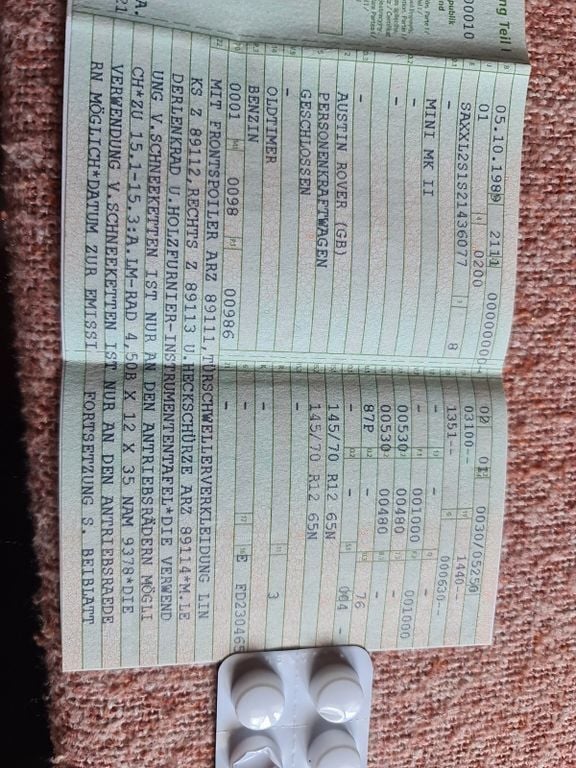 ng Teil I
publik
00010
05.10.1989 2111 00000000
01 0200
SAXXL2S1S21436077 8
-
MINI MK II
-
-
-
AUSTIN ROVER (GB)
PERSONENKRAFTWAGEN
GESCHLOSSEN
-
OLDTIMER
BENZIN
0001 0098 00986
02 01 0030/05250
03100-- 1440--
1351-- 000630--
- 001000 001000
00530 00480 -
00530 00480 -
87P - 76
- - 004 -
145/70 R12 65N
145/70 R12 65N
-
-
- 3
-
- E FD230465
MIT FRONTSPOILER ARZ 89111,TÜRSCHWELLERVERKLEIDUNG LIN
KS Z 89112,RECHTS Z 89113 U.HECKSCHÜRZE ARZ 89114*M.LE
DERLENKRAD U.HOLZFURNIER-INSTRUMENTENTAFEL*DIE VERWEND
UNG V.SCHNEEKETTEN IST NUR AN DEN ANTRIEBSRÄDERN MÖGLI
CH*ZU 15.1-15.3:A.LM-RAD 4,50B X 12 X 35 NAM 9378*DIE
VERWENDUNG V.SCHNEEKETTEN IST NUR AN DEN ANTRIEBSRAEDE
RN MÖGLICH*DATUM ZUR EMISSI FORTSETZUNG S. BEIBLATT